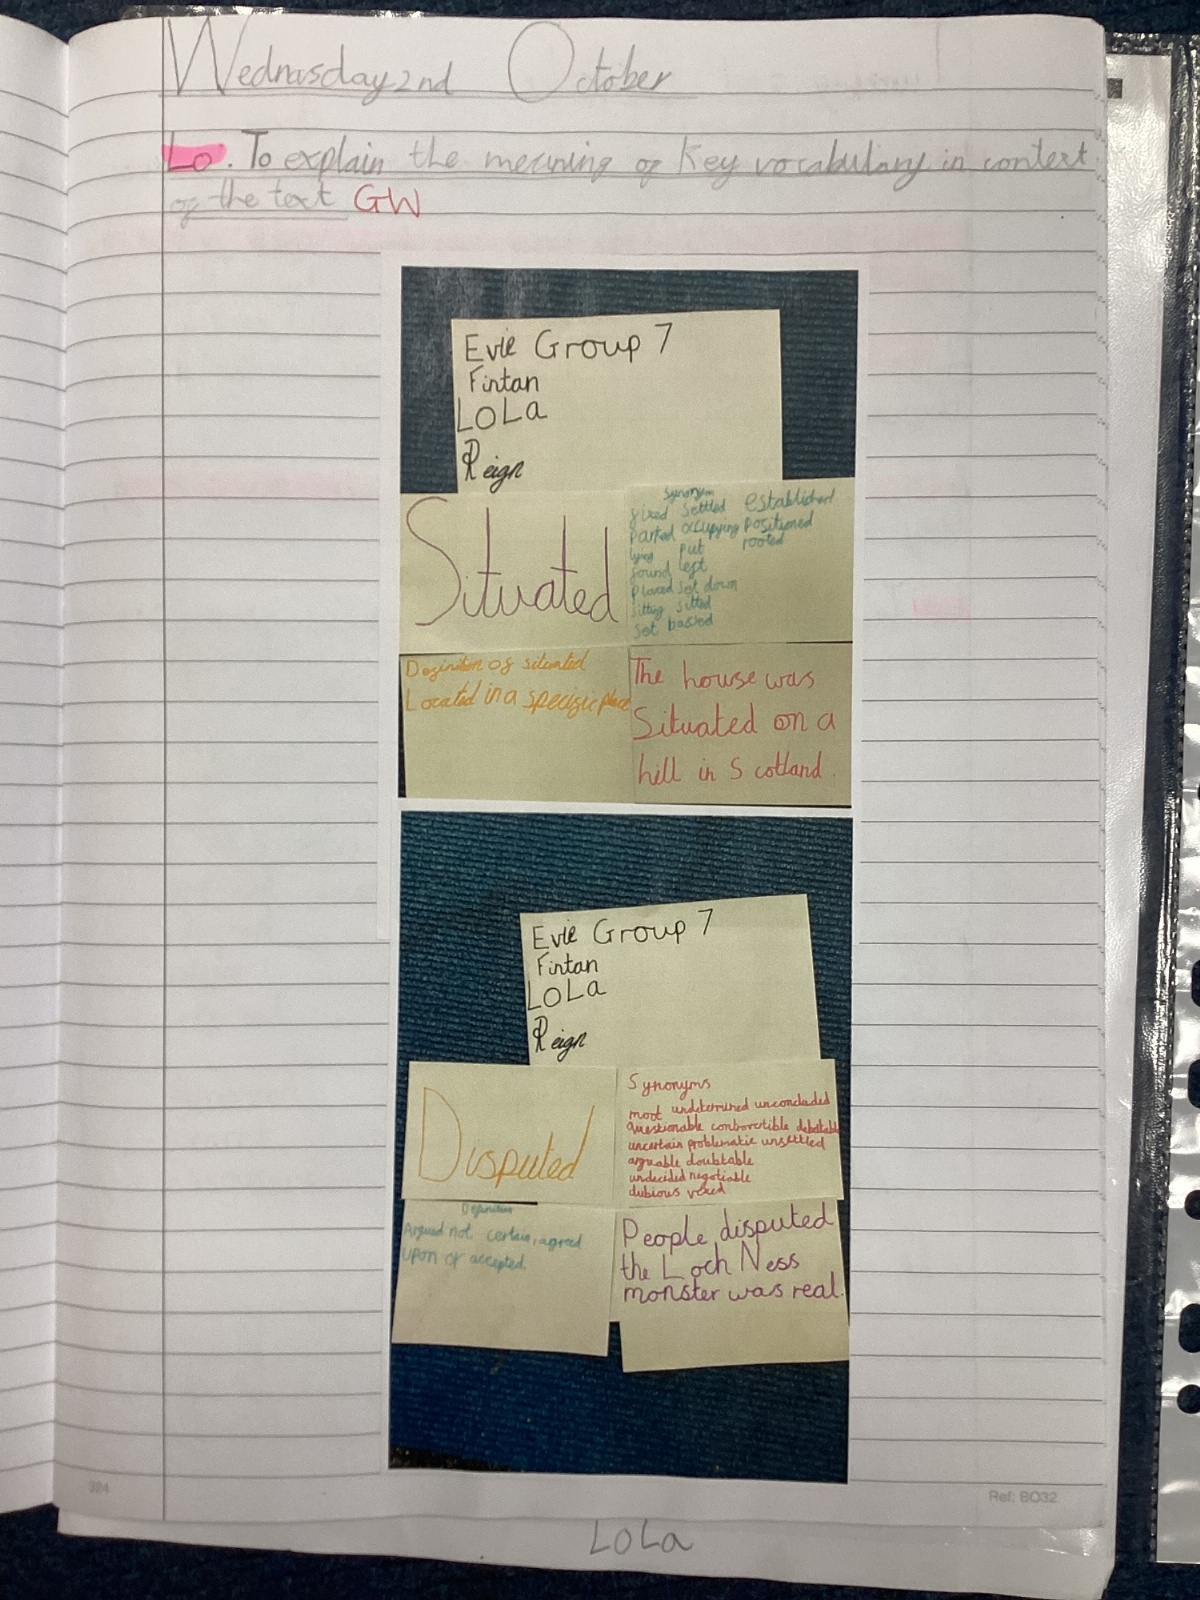 Wednesday 2nd October
Lo. To explain the meaning of Key vocabulary in context
of the text GW
Evie Group 7
Fintan
LOLa
Reign
Situated
Synonym
fixed settled established
parked occupying positioned
lying put rooted
found left
placed set down
sitting sitted
set based
Definition of situated
Located in a specific place
The house was
Situated on a
hill in Scotland.
Evie Group 7
Fintan
LOLa
Reign
Disputed
Synonyms
moot undetermined unconcluded
questionable controvertible debatable
uncertain problematic unsettled
arguable doubtable
undecided negotiable
dubious vexed
Definition
Argued not certain, agreed
upon or accepted.
People disputed
the Loch Ness
monster was real.
324
Ref: BO32
LOLa